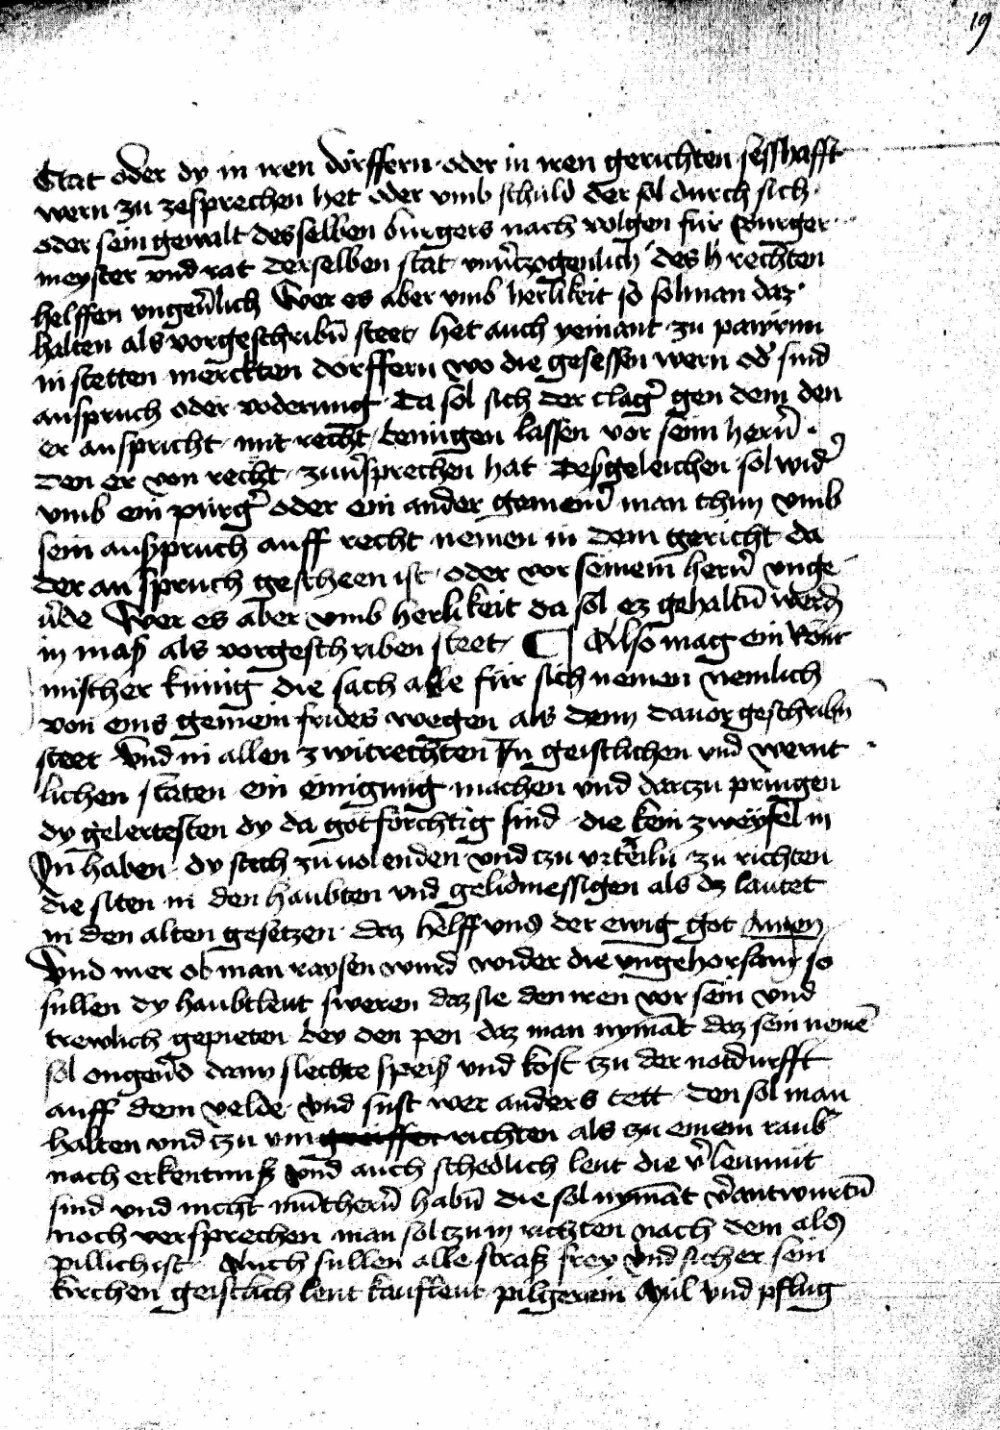 19
Stat oder dy in iren dörffern oder in iren gerichten sesshafft
wern zu zesprechen het oder vmb schuld der sol durch sich
oder sein gewalt desselben burgers nach volgen für burger
meyster vnd rat derselben stat des rechten
helffen vngeũlich Wer es aber vmb herlikeit so solman daz
halten als vorgeschribñ steet het auch yemant zu pawrnn
in stetten merckten dorffern wo die gesessen wern od sind
anspruch oder voderung Da sol sich der clag gen dem den
er anspricht mit recht benügen lassen vor seim herñ
den er von recht zuũsprechen hat Desgeleichen sol wid
vmb ein pürg oder ein ander gemein man thun vmb
sein anspruch auff recht nemen in dem gericht da
der an spruch gescheen ist oder vor seinem herñ vnge
ũde Wer es aber vmb herlikeit da sol ez gehaltñ werd
in maß als vorgeschriben steet ¶ Also mag ein Röm
mischer künig die sach alle für sich nemen nemlich
von eins gemein frides wegen als denn dauor geschribñ
steet Vnd in allen zwitrechten In geistlichen vnd wernt
lichen staten ein einigung machen vnd darzu pringen
dy gelertesten dy da gotförchtig sind die kein zweyfel in
In haben dy sach zu uolenden vnd tzu vrteiln zu richten
die siten in den haubten vnd gelidmessigen als dz lautet
in den alten gesetzen daz helff vns der ewig got Amen
Vnd mer ob man raysen wurd wider die vngehorsam so
sullen dy haubtleut sweren daz sie den iren vor sein vnd
trewlich gepieten bey den pen daz man nymāt daz sein nemē
sol ongeũd dann slechte speiß vnd kost tzu der notdurfft
auff dem velde vnd sust wer anders tett Den sol man
halten vnd tzu vm greiffen richten als zu einem raub
nach erkentnuß vnd auch schedlich leut die ṽleumut
sind vnd nicht mūtherñ habñ die sol nymāt ṽantwurtñ
noch versprechen man sol tzu in richten nach dem als
pillich ist Auch sullen alle straß frey vnd sicher sein
kirchen geistlich leut kaufleut pilgerein Mül vnd pflug